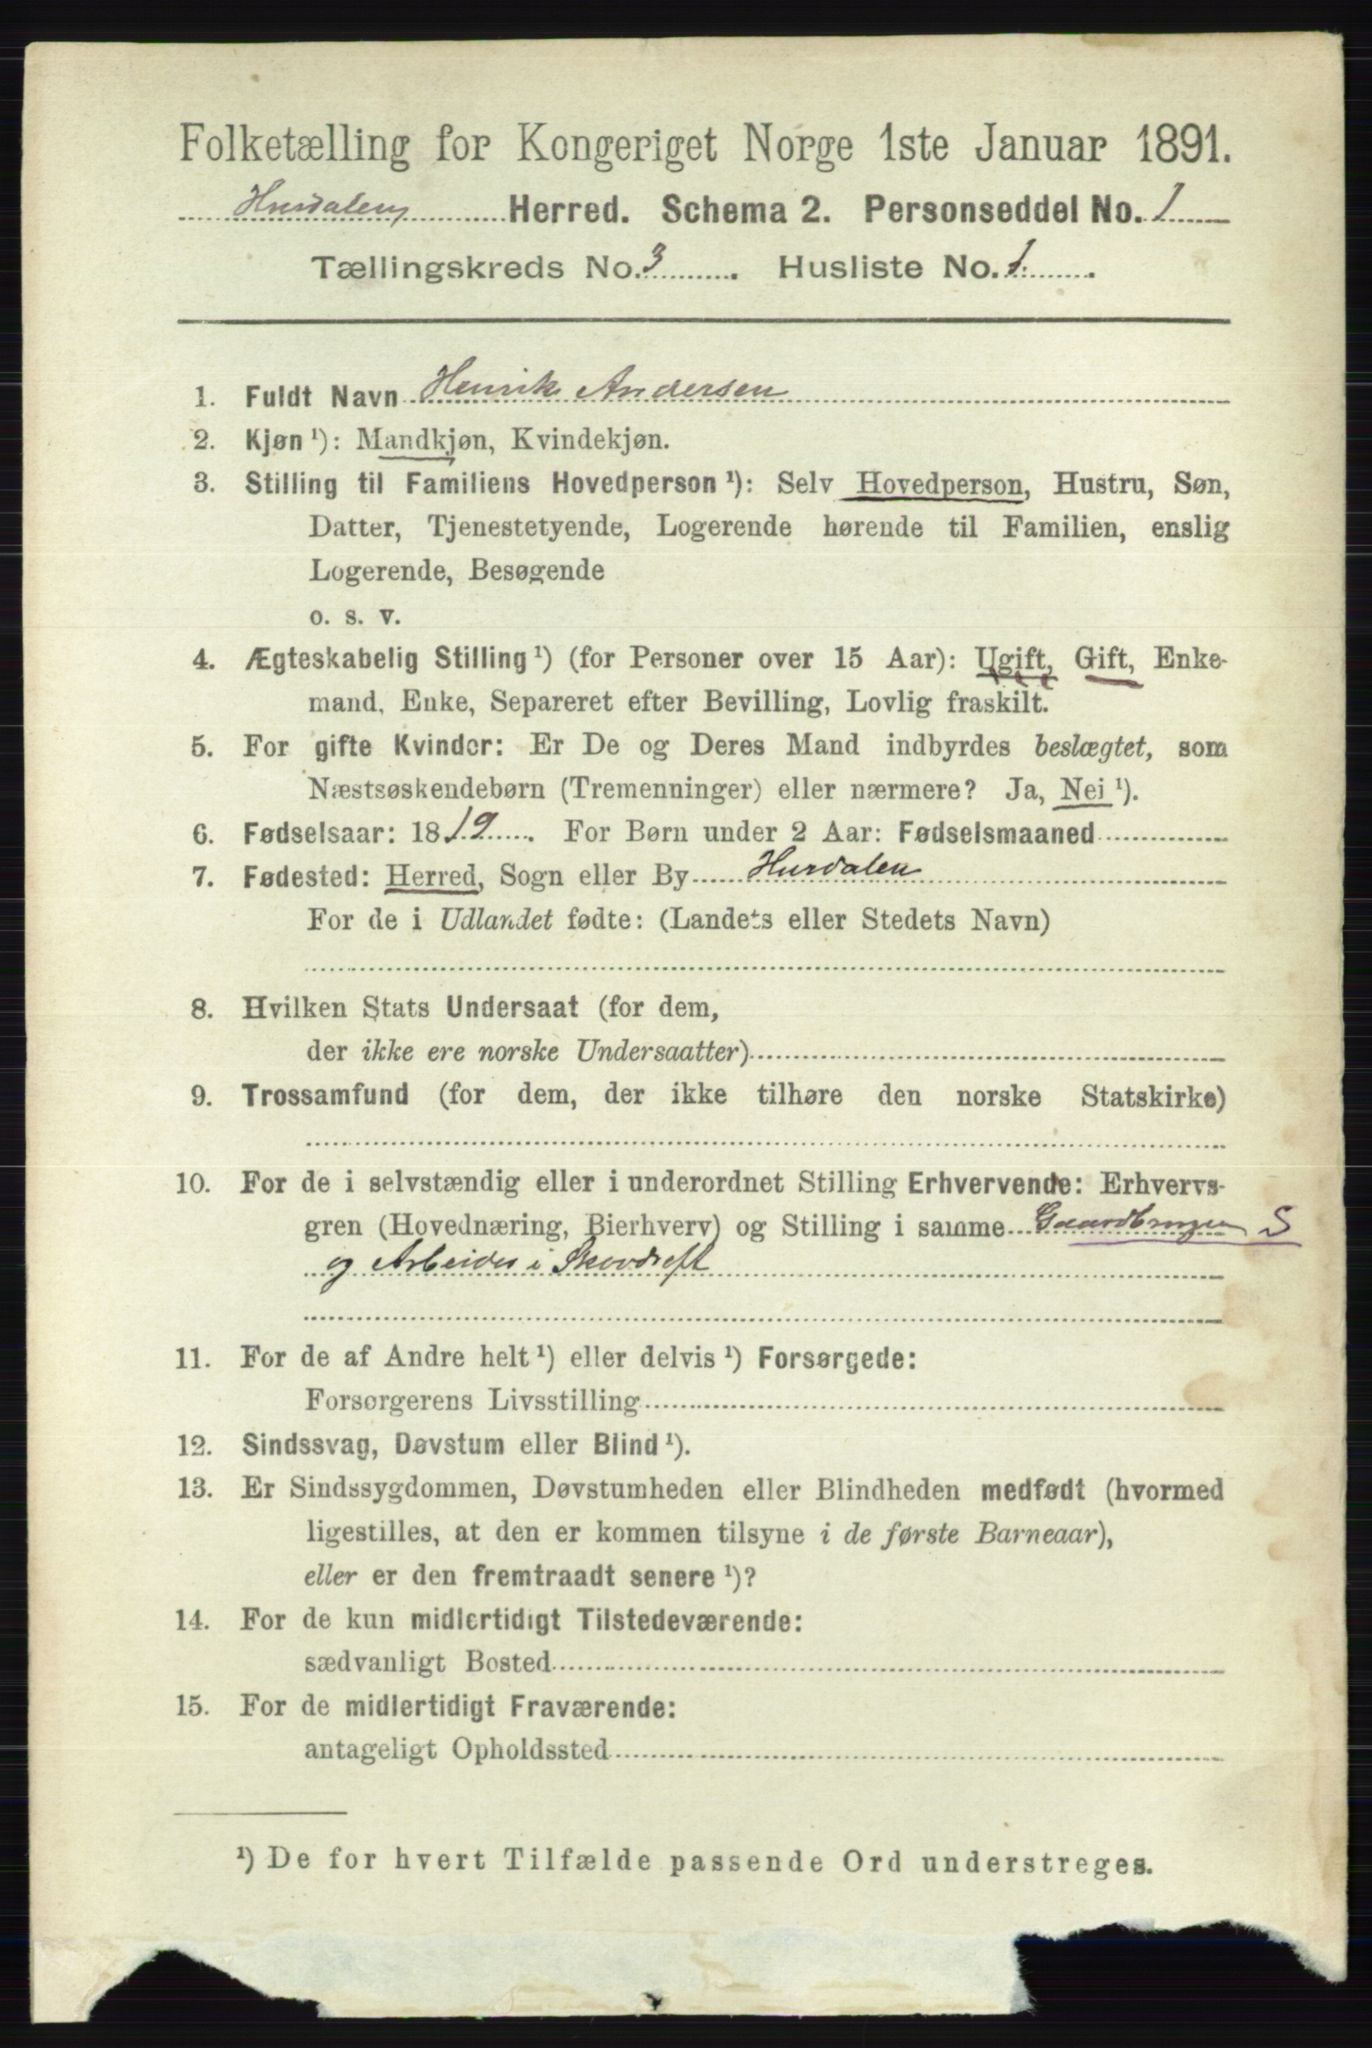 Folketælling for Kongeriget Norge 1ste Januar 1891.
Hurdalens Herred. Schema 2. Personseddel No. 1
Tællingskreds No. 3. Husliste No. 1.
1. Fuldt Navn Henrik Andersen
2. Kjøn ¹): Mandkjøn, Kvindekjøn.
3. Stilling til Familiens Hovedperson ¹): Selv Hovedperson, Hustru, Søn,
Datter, Tjenestetyende, Logerende hørende til Familien, enslig
Logerende, Besøgende
o. s. v.
4. Ægteskabelig Stilling ¹) (for Personer over 15 Aar): Ugift, Gift, Enke-
mand, Enke, Separeret efter Bevilling, Lovlig fraskilt.
5. For gifte Kvinder: Er De og Deres Mand indbyrdes beslægtet, som
Næstsøskendebørn (Tremenninger) eller nærmere? Ja, Nei ¹).
6. Fødselsaar: 1819. For Børn under 2 Aar: Fødselsmaaned
7. Fødested: Herred, Sogn eller By Hurdalen
For de i Udlandet fødte: (Landets eller Stedets Navn)
8. Hvilken Stats Undersaat (for dem,
der ikke ere norske Undersaatter)
9. Trossamfund (for dem, der ikke tilhøre den norske Statskirke)
10. For de i selvstændig eller i underordnet Stilling Erhvervende: Erhvervs-
gren (Hovednæring, Bierhverv) og Stilling i samme Gaardbruger S
og Arbeider i Skovdrift
11. For de af Andre helt ¹) eller delvis ¹) Forsørgede:
Forsørgerens Livsstilling
12. Sindssvag, Døvstum eller Blind ¹).
13. Er Sindssygdommen, Døvstumheden eller Blindheden medfødt (hvormed
ligestilles, at den er kommen tilsyne i de første Barneaar),
eller er den fremtraadt senere ¹)?
14. For de kun midlertidigt Tilstedeværende:
sædvanligt Bosted
15. For de midlertidigt Fraværende:
antageligt Opholdssted
¹) De for hvert Tilfælde passende Ord understreges.